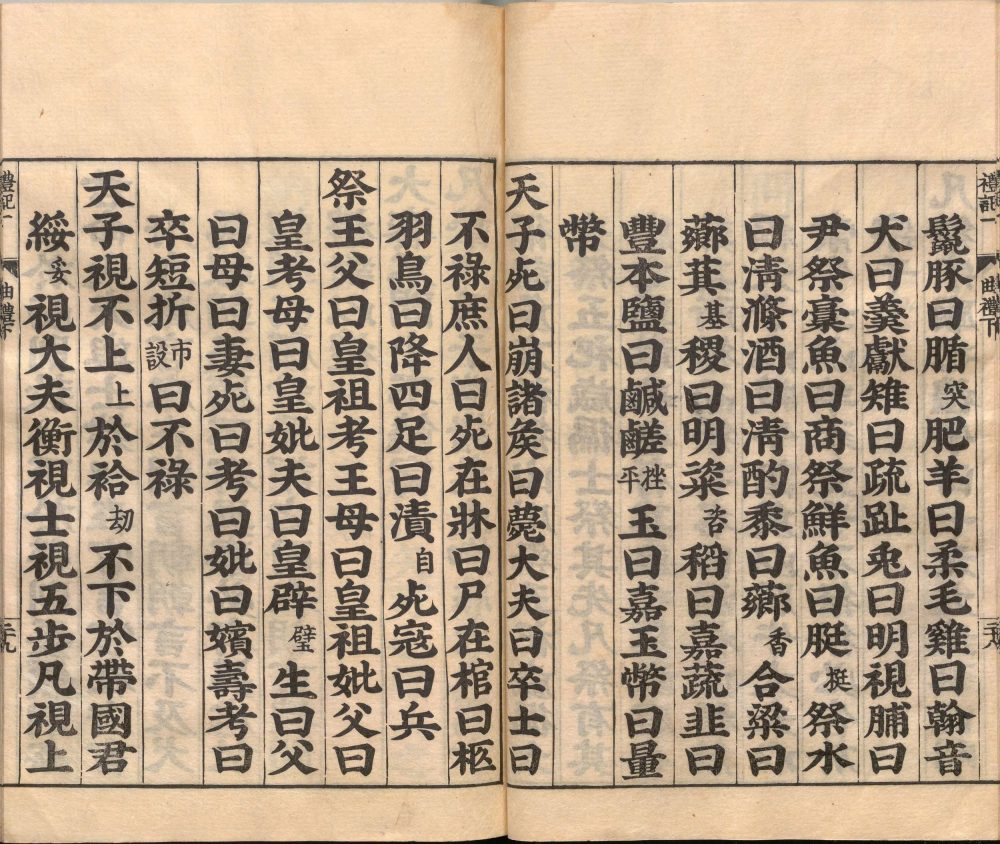 禮記一
曲禮下
鬣豚曰腯突肥羊曰柔毛雞曰翰音
犬曰羹獻雉曰疏趾兎曰明視脯曰
尹祭槀魚曰商祭鮮魚曰脡挺祭水
曰淸滌酒曰淸酌黍曰薌香合粱曰
薌萁基稷曰明粢咨稻曰嘉蔬韭曰
豐本鹽曰鹹鹺挫平玉曰嘉玉幣曰量
幣
天子死曰崩諸矦曰薨大夫曰卒士曰
不祿庶人曰死在牀曰尸在棺曰柩
羽鳥曰降四足曰漬自死寇曰兵
祭王父曰皇祖考王母曰皇祖妣父曰
皇考母曰皇妣夫曰皇辟璧生曰父
曰母曰妻死曰考曰妣曰嬪壽考曰
卒短折市設曰不祿
天子視不上上於袷劫不下於帶國君
綏妥視大夫衡視士視五步凡視上
禮記一
曲禮下
三十九